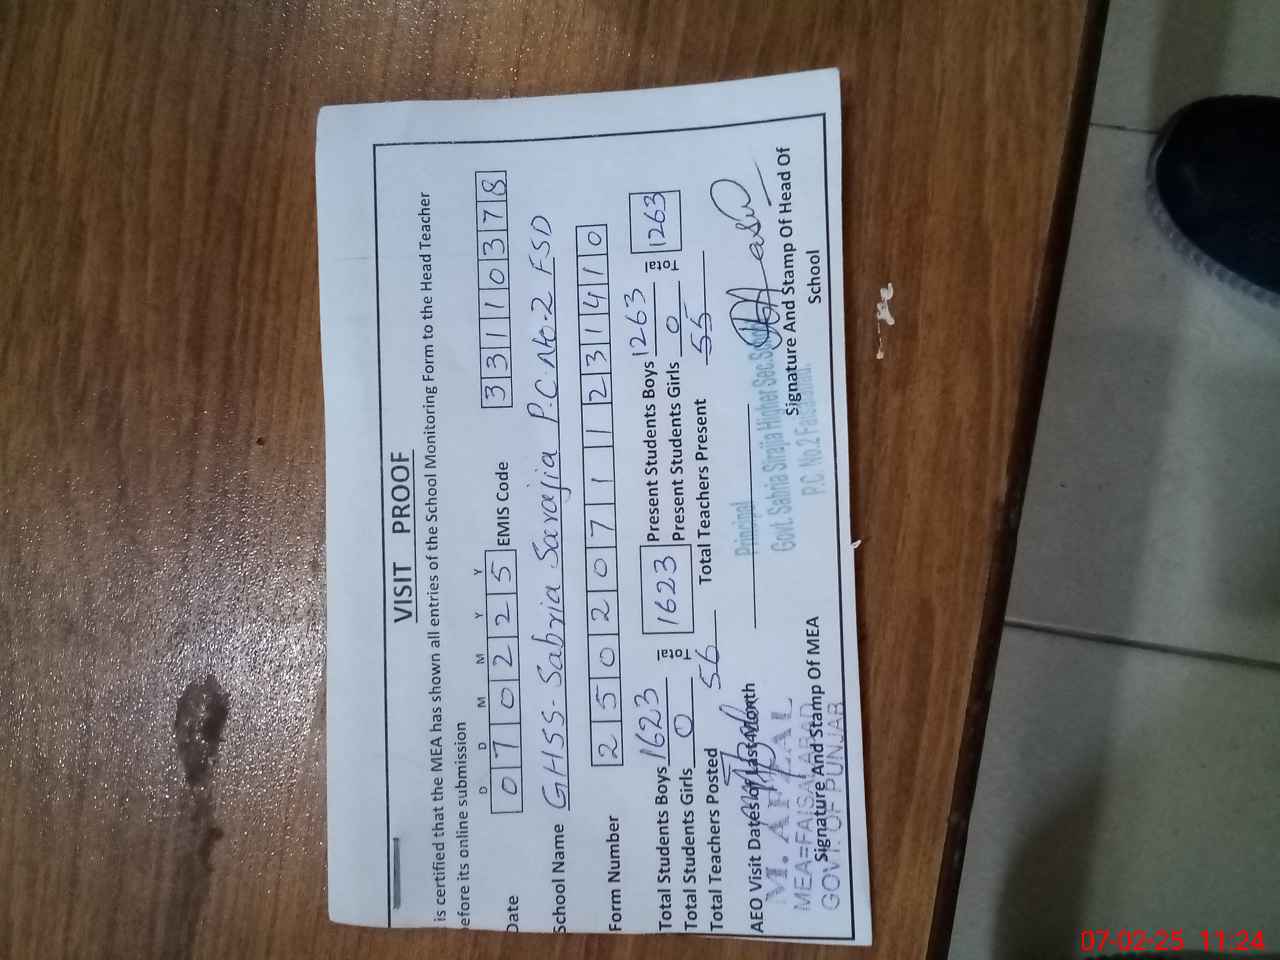 VISIT PROOF
is certified that the MEA has shown all entries of the School Monitoring Form to the Head Teacher
efore its online submission
D D M M Y Y
Date 0 7 0 2 2 5 EMIS Code 3 3 1 1 0 3 7 8
School Name GHSS- Sabria Sarajia P.C. No.2 FSD
Form Number 2 5 0 2 0 7 1 1 2 3 1 4 1 0
Total Students Boys 1623 Total 1623 Present Students Boys 1263 Total 1263
Total Students Girls 0 Present Students Girls 0
Total Teachers Posted 56 Total Teachers Present 55
AEO Visit Dates of Last Month
Principal
Govt. Sabria Sirajia Higher Sec.
P.C. No.2 Faisalabad.
M. AFZAL
MEA=FAISALABAD
GOVT. OF PUNJAB
Signature And Stamp Of MEA
Signature And Stamp Of Head Of
School
07-02-25 11:24